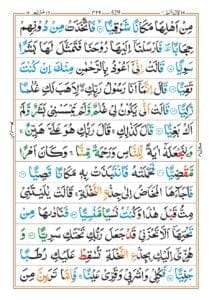 مِنْ اَهْلِهَا مَكَانًا شَرْقِيًّا ۝ فَاتَّخَذَتْ مِنْ دُوْنِهِمْ
حِجَابًا فَاَرْسَلْنَآ اِلَيْهَا رُوْحَنَا فَتَمَثَّلَ لَهَا بَشَرًا
سَوِيًّا ۝ قَالَتْ اِنِّيْٓ اَعُوْذُ بِالرَّحْمٰنِ مِنْكَ اِنْ كُنْتَ
تَقِيًّا ۝ قَالَ اِنَّمَآ اَنَا رَسُوْلُ رَبِّكِ لِاَهَبَ لَكِ غُلٰمًا
زَكِيًّا ۝ قَالَتْ اَنّٰى يَكُوْنُ لِيْ غُلٰمٌ وَّلَمْ يَمْسَسْنِيْ بَشَرٌ وَّلَمْ
اَكُ بَغِيًّا ۝ قَالَ كَذٰلِكِ قَالَ رَبُّكِ هُوَ عَلَيَّ هَيِّنٌ
وَلِنَجْعَلَهٗٓ اٰيَةً لِّلنَّاسِ وَرَحْمَةً مِّنَّا وَكَانَ اَمْرًا
مَّقْضِيًّا ۝ فَحَمَلَتْهُ فَانْتَبَذَتْ بِهٖ مَكَانًا قَصِيًّا ۝
فَاَجَآءَهَا الْمَخَاضُ اِلٰى جِذْعِ النَّخْلَةِ قَالَتْ يٰلَيْتَنِيْ
مِتُّ قَبْلَ هٰذَا وَكُنْتُ نَسْيًا مَّنْسِيًّا ۝ فَنَادٰىهَا مِنْ
تَحْتِهَآ اَلَّا تَحْزَنِيْ قَدْ جَعَلَ رَبُّكِ تَحْتَكِ سَرِيًّا ۝ وَ
هُزِّيْٓ اِلَيْكِ بِجِذْعِ النَّخْلَةِ تُسٰقِطْ عَلَيْكِ رُطَبًا
جَنِيًّا ۝ فَكُلِيْ وَاشْرَبِيْ وَقَرِّيْ عَيْنًا فَاِمَّا تَرَيِنَّ مِنَ